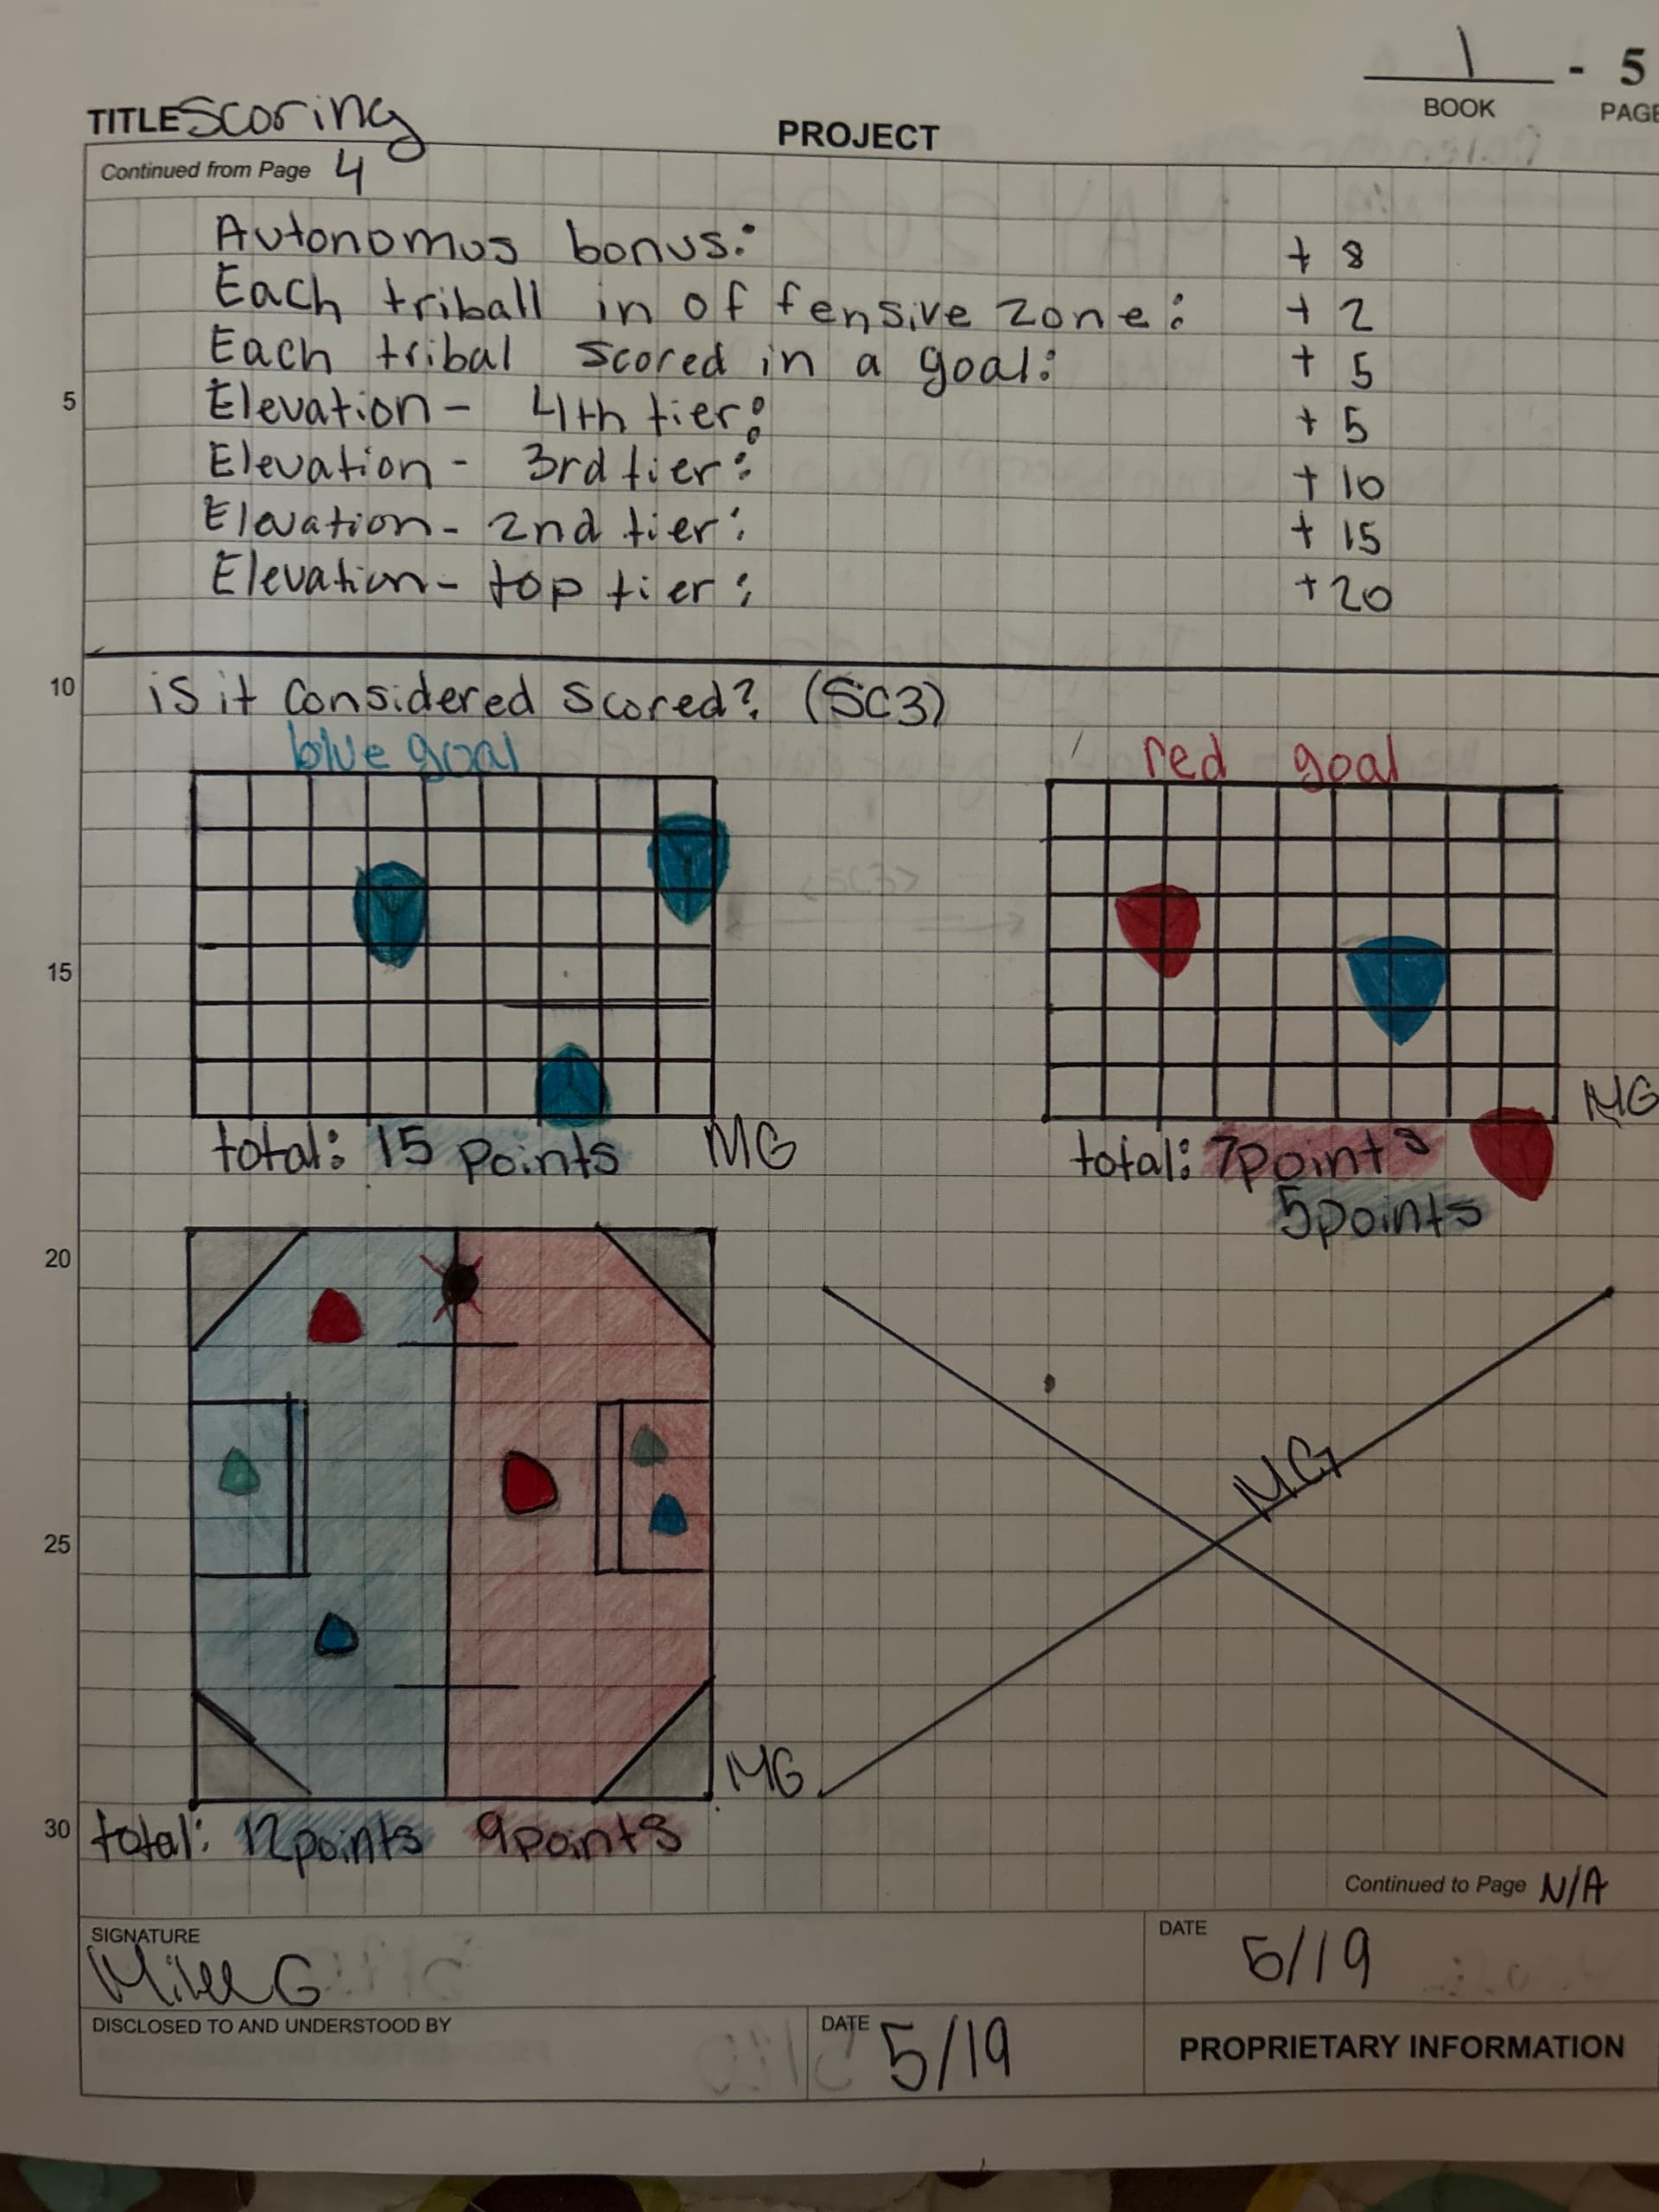 1 - 5
BOOK PAGE
TITLE Scoring
PROJECT
Continued from Page 4
Autonomus bonus: + 8
Each triball in offensive zone: + 2
Each tribal scored in a goal: + 5
5
Elevation - 4th tier: + 5
Elevation - 3rd tier: + 10
Elevation - 2nd tier: + 15
Elevation - top tier: + 20
10
is it considered scored? (SC3)
blue goal
red goal
15
MG
total: 15 points MG
total: 7points
5points
20
MG
25
MG
30
total: 12points 9points
Continued to Page N/A
SIGNATURE
DATE 5/19
G
DISCLOSED TO AND UNDERSTOOD BY
DATE 5/19
PROPRIETARY INFORMATION